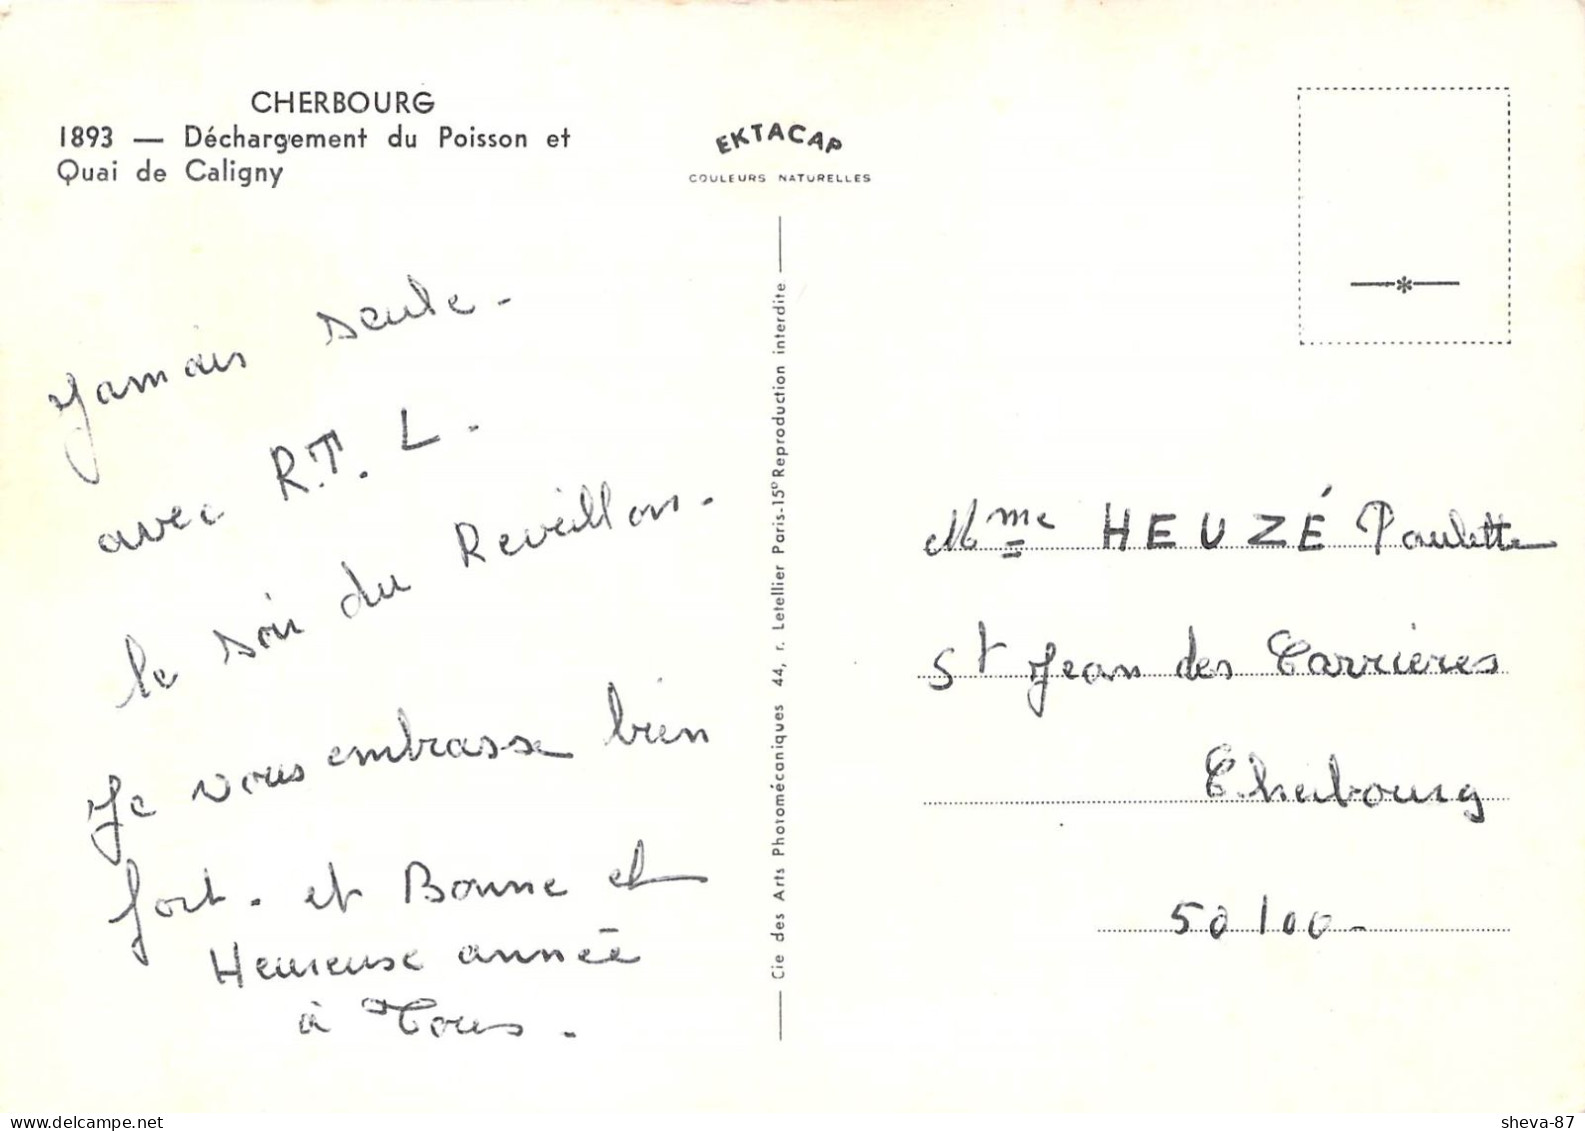 CHERBOURG
1893 — Déchargement du Poisson et
Quai de Caligny
EKTACAP
COULEURS NATURELLES
Jamais seule -
avec R.T.L -
le soir du Reveillon -
Je vous embrasse bien
fort - et Bonne et
Heureuse année
à Tous -
Cie des Arts Photomécaniques 44, r. Letellier Paris-15º Reproduction interdite
Mme HEUZÉ Paulette
St Jean des Carrières
Cherbourg
50100 -
delcampe.net
sheva-87